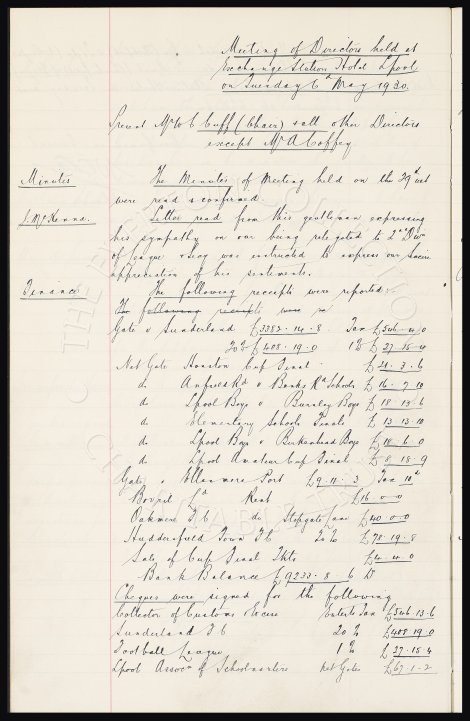 Meeting of Directors held at
Exchange Station Hotel Lpool
on Tuesday 6th May 1930.
Present Mr W C Cuff (Chair) & all other Directors
except Mr A Coffey
Minutes The Minutes of Meeting held on the 29th ult
were read & confirmed.
J. McKenna. Letter read from this gentleman expressing
his sympathy on our being relegated to 2nd Divn
of League & Secy was instructed to express our sincere
appreciation of his sentiments.
Finance The following receipts were reported:
The following receipts were
Gate v Sunderland £3382.14.8. Tax £546.4.0
20% £408.19.0 1% £27.15.4
Net Gate Houston Cup Final £21.3.6
do Anfield Rd v Banks Rd Schools £16.7.10
do Lpool Boys v Burnley Boys £18.13.6
do Elementary Schools Finals £13.13.10
do Lpool Boys v Birkenhead Boys £18.6.0
do Lpool Amateur Cup Final £8.18.9
Gate v Ellesmere Port £9.11.3 Tax
Bovril Ld Rent £16.0.0
Oakmere F.C do Stopgate Lane £40.0.0
Huddersfield Town F.C 20% £78.19.8
Sale of Cup Final Tkts £4.4.0
Bank Balance £9233.8.6 Dr
Cheques were signed for the following
Collector of Customs & Excise Enterts Tax £546.13.6
Sunderland F.C 20% £408.19.0
Football League 1% £27.15.4
Lpool Assocn of Schoolmasters Net Gates £67.1.2